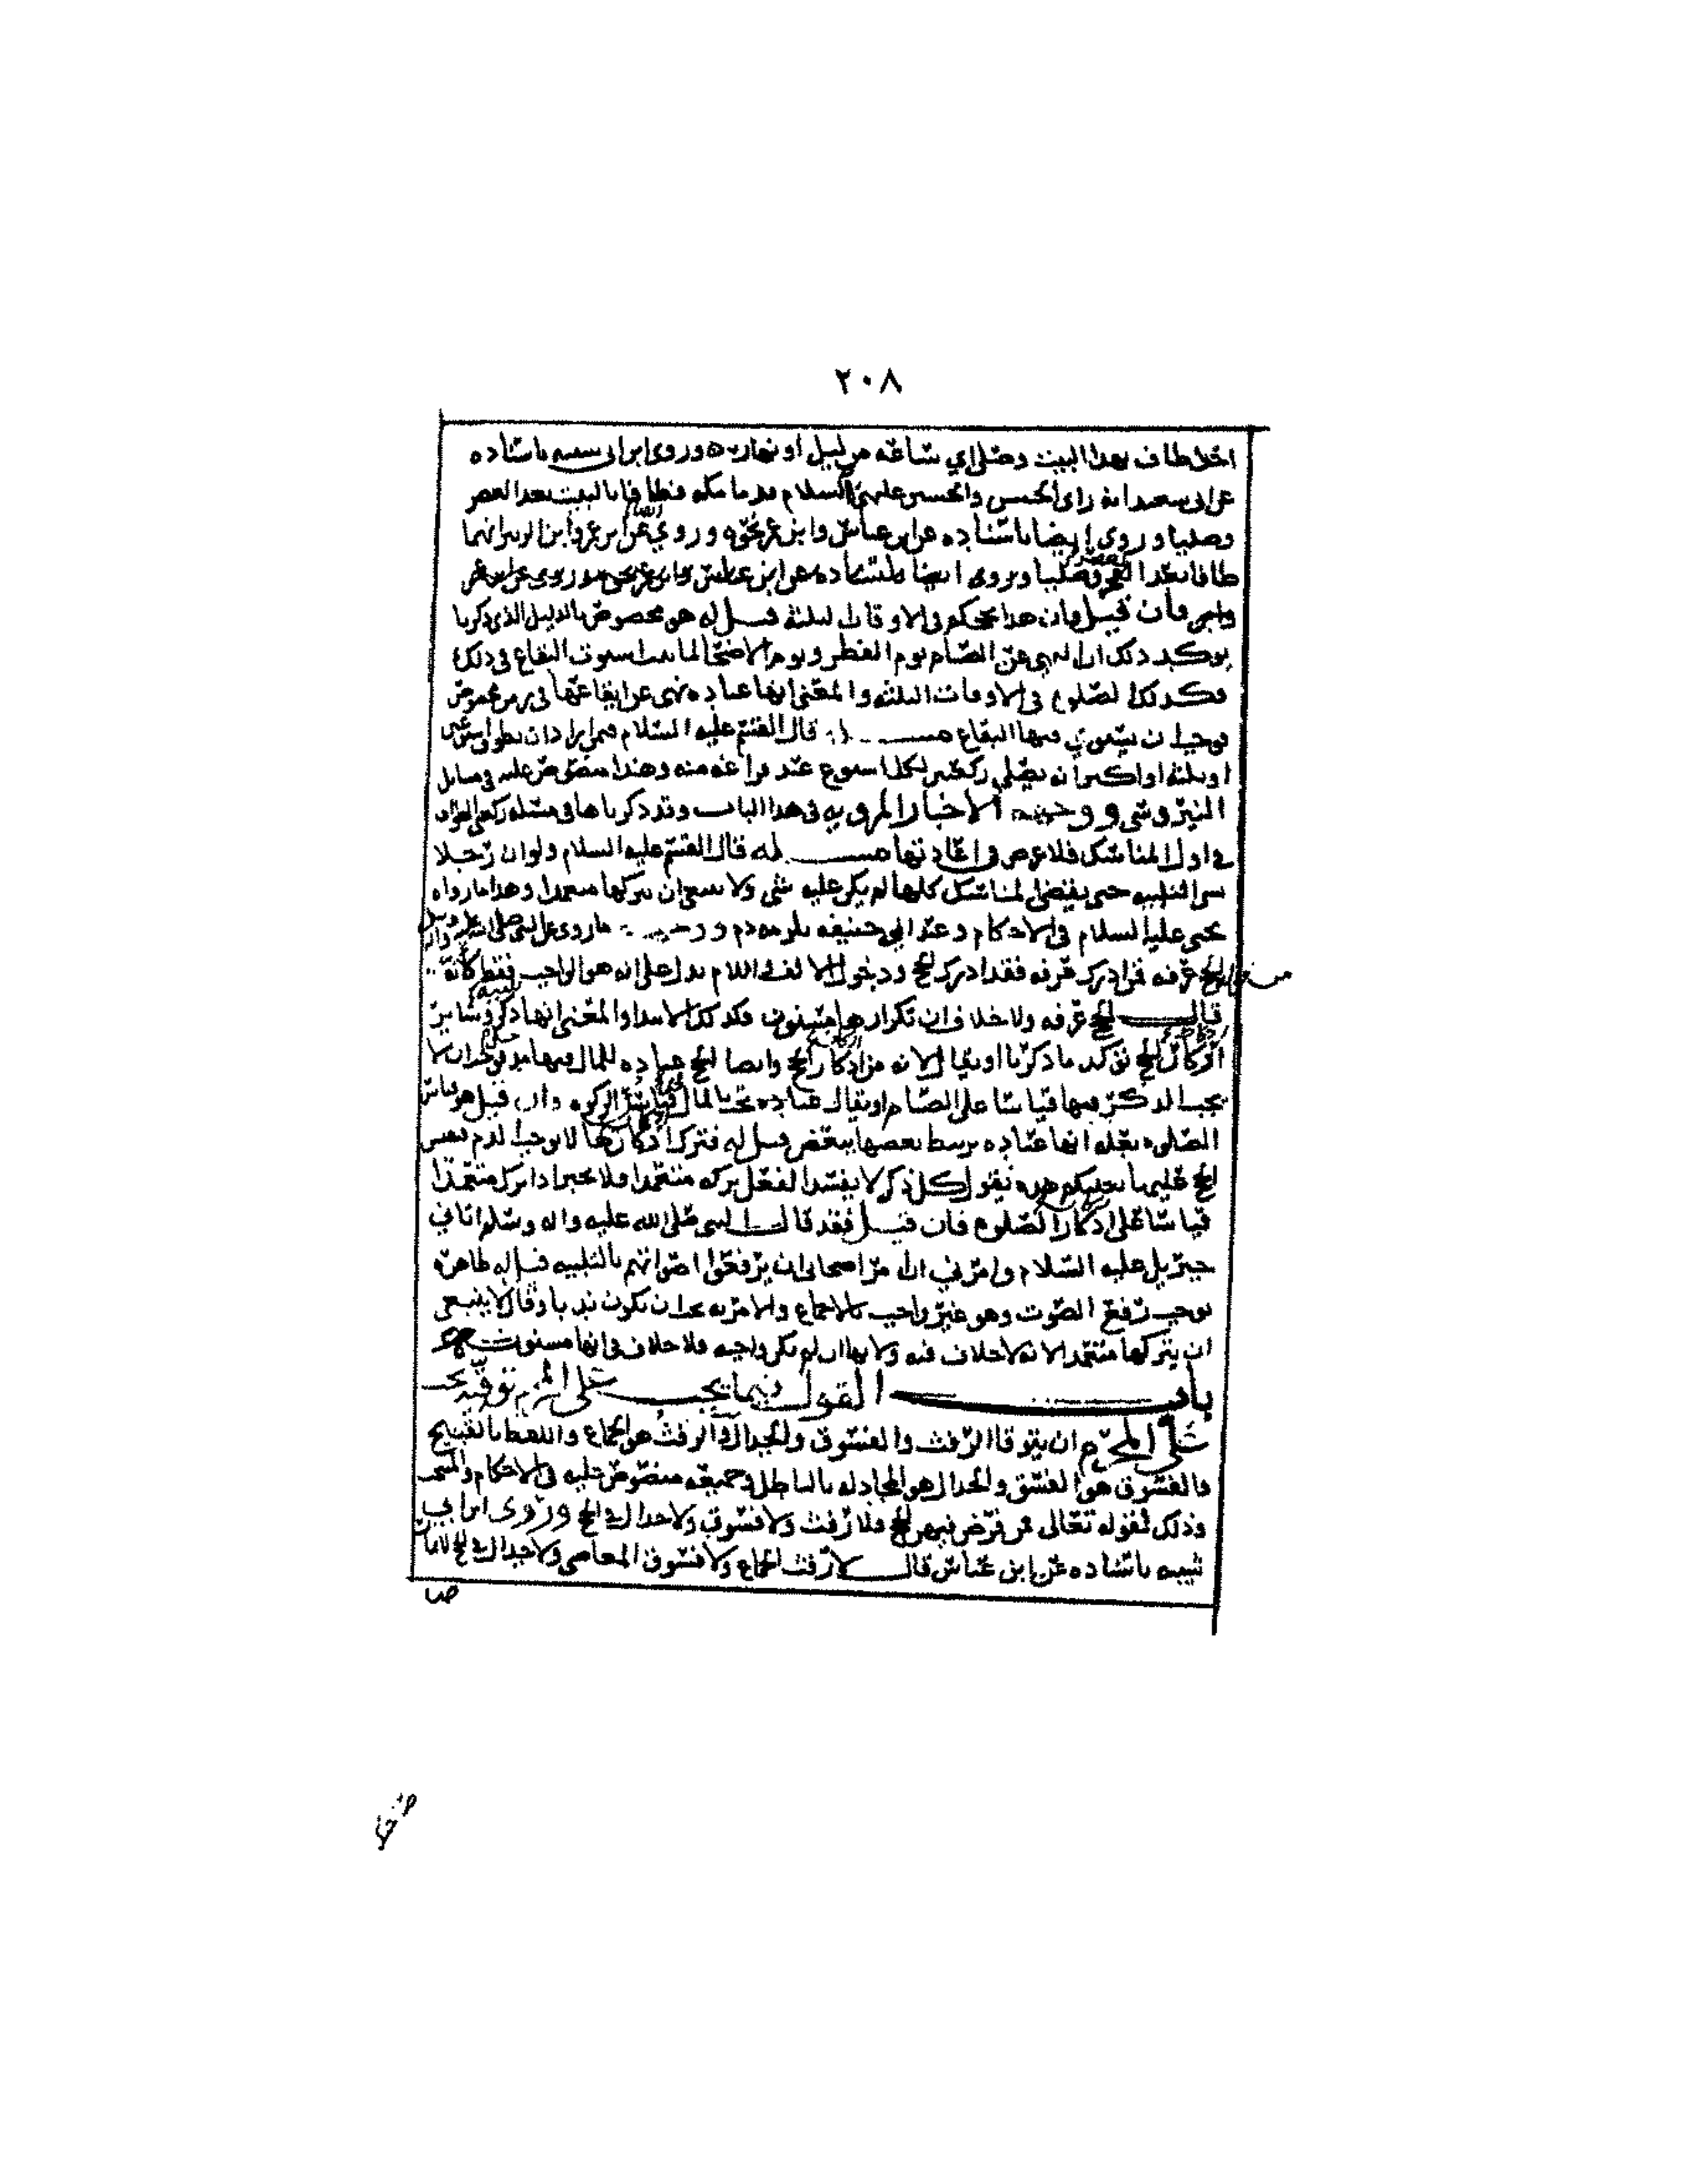 ٢٠٨
احدا طاف بهذا البيت وصلى اي ساعة من ليل او نهار وروى ابن ابي شيبه باسناده
عن ابي سعيد انه راى الحسن والحسين عليهما السلام قدما مكه فطافا بالبيت بعد العصر
وصليا وروى ايضا باسناده عن ابن عباس وابن عمر نحوه وروي عن ابن عمر وابن الزبير انهما
طافا بعد الفجر وصليا
فان قيل فان هذا حكم في الاوقات الثلثة قيل له هو مخصوص بالدليل الذي ذكرنا
يوكد ذلك ان النهي عن الصيام يوم الفطر ويوم الاضحى لما استوت البقاع في ذلك
فكذلك الصلوه في الاوقات الثلثه والمعنى انها عباده نهي عن ايقاعها في زمن مخصوص
فوجب ان يستوي فيها البقاع قال القسم عليه السلام فمن اراد ان يطوف اسبوعين
او ثلثه او اكثر انه يصلي ركعتين لكل اسبوع عند فراغه منه وهذا منصوص عليه في مسايل
النيروسي ووجهه الاخبار المرويه في هذا الباب وقد ذكرناها في مسئله ركعتي الطواف
في اول المناسك فلا غرض في اعادتها مسئله قال القسم عليه السلام ولو ان رجلا
نسي التلبيه حتى يقضي المناسك كلها لم يكن عليه شي ولا ينبغي ان يتركها متعمدا وهذا ما رواه
يحيى عليه السلام في الاحكام وعند ابي حنيفه يلزمه دم ووجهه ما روي عن النبي صلى الله عليه واله وسلم
الحج عرفه فمن ادرك عرفه فقد ادرك الحج ودخول الالف واللام يدل على انه هو الواجب فقط كانه
قال الحج عرفه ولا خلاف ان تكرارها مسنون فكذلك الابتدا والمعنى انها ذكر وساير
اذكار الحج توكد ما ذكرنا او يقال لانه من اذكار الحج وايضا الحج عباده للمال فيها مدخل
يجب الذكر فيها قياسا على الصيام او يقال عباده تجب بالمال الزكوه وان قيل هو قياس
الصلوه بعله انها عباده يرتبط بعضها ببعض قيل له فترك اذكارها لا يوجب الدم فليس
الحج عليها باحكم هذه نقول كل ذكر لا يفسد الفعل بتركه متعمدا فلا يجبر اذا ترك متعمدا
قياسا على اذكار الصلوه فان قيل فقد قال النبي صلى الله عليه واله وسلم اتاني
جبريل عليه السلام وامرني ان امر اصحابي ان يرفعوا اصواتهم بالتلبيه قيل له ظاهره
يوجب رفع الصوت وهو غير واجب بالاجماع والامر به يجب ان يكون ندبا وقال لا ينبغي
ان يتركها متعمدا لانه لا خلاف فيه ولانها ان لم تكن واجبه فلا خلاف في انها مسنونه
باب القول فيما يجب على المحرم توقيه يجب
على المحرم ان يتوقا الرفث والفسوق والجدال والرفث هو الجماع واللفظ بالقبيح
والفسوق هو الفسق والجدال هو المجادله بالباطل وجميعه منصوص عليه في الاحكام والمنتخب
وذلك لقوله تعالى فمن فرض فيهن الحج فلا رفث ولا فسوق ولا جدال في الحج وروى ابن ابي
شيبه باسناده عن ابن عباس قال لا رفث الجماع ولا فسوق المعاصي ولا جدال في الحج